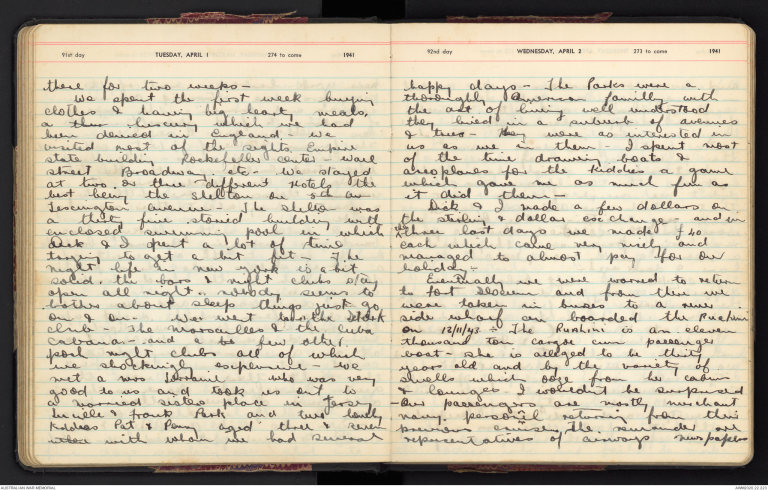 91st day TUESDAY, APRIL 1 274 to come 1941
there for two weeks -
We spent the first week buying
clothes & having big hearty meals,
a thur luxury which we had
been denied in England - we
visited most of the sights Empire
state building Rockefeller center - wall
street Broadway, etc - We stayed
at two or three different Hotels the
best being the Shelton on 5th an
Lexington avenue. The Shelton was
a thirty five storied building with
enclosed swimming pool in which
Dick & I spent a lot of time
trying to get a bit fit - The
night life in new york is a bit
solid, the bars & night clubs stay
open all night & nobody seems to
bother about sleep things just go
on & on. We went to the Stork
club - The Maroccalles & the Cuba
Cabanas - and a few other
posh night clubs all of which
were shockingly expensive - we
met a mrs Lorraine who was very
good to us and took us out to
a married sisters place in Jersey
Lucille & Frank Park and two lovely
kiddies Pat & Penny aged three & seven
with whom we had several
92nd day WEDNESDAY, APRIL 2 273 to come 1941
happy days - The Parks were a
thoroughly American family with
the art of living well understood
they lived in a suburb of avenues
& trees - they were as interested in
us as we in them - I spent most
of the time drawing boats &
aeroplanes for the kiddies a game
which gave me as much fun as
it did them -
Dick & I made a few dollars on
the sterling & dollar exchange - and in
the three last days we made £40
each which came very nicely and
managed to almost pay for our
holiday -
Eventually we were warned to return
to Fort Slocum and from there we
were taken in buses to a river
side wharf an boarded the Ruahini
on 12/11/43 - The Ruahini is an eleven
thousand ton cargoe cum passenger
boat - she is alleged to be thirty
years old and by the variety of
smells which ooze from her cabins
& lounges I wouldn't be surprised
Our passengers are mostly merchant
navy, personel returning from their
previous cruises, the remainder are
representatives of airways newspapers
AUSTRALIAN WAR MEMORIAL